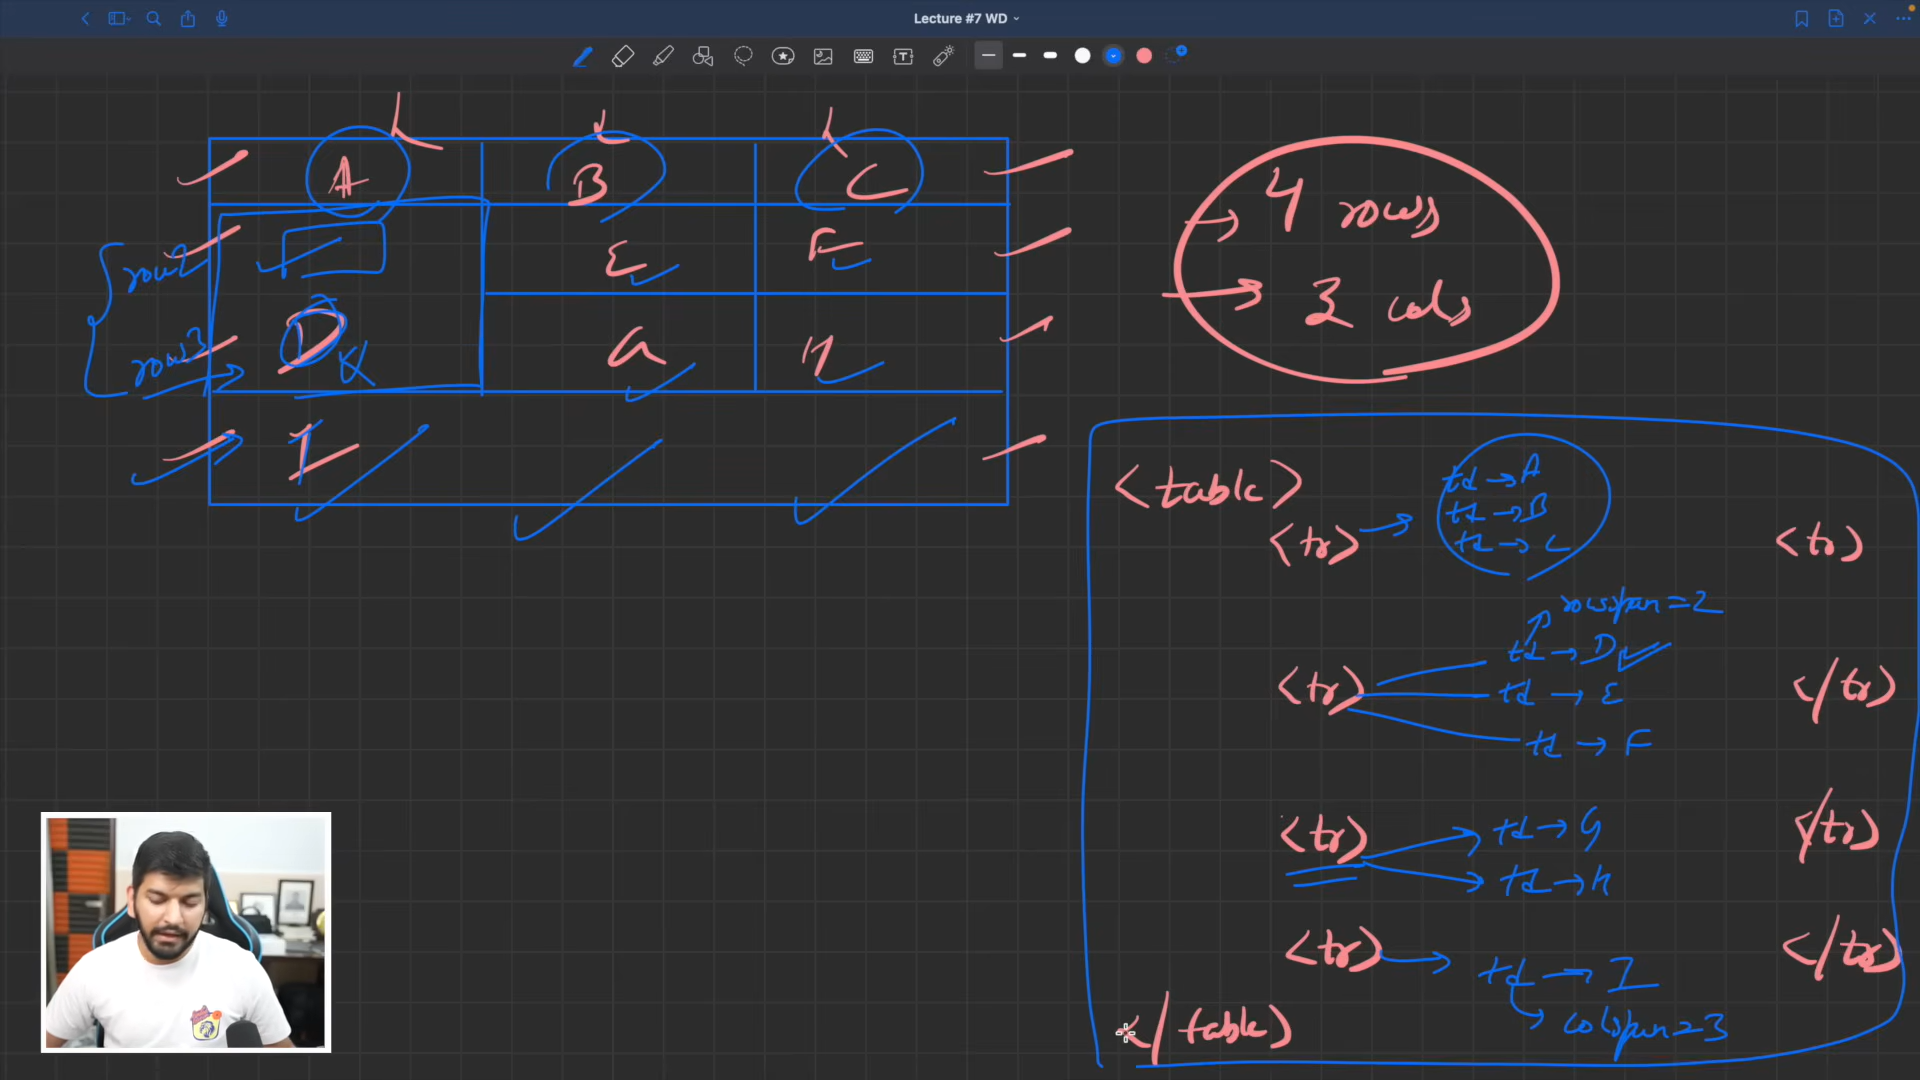 Lecture #7 WD
A B C
row2 E F
row3 D G H
I
4 rows
3 cols
<table>
<tr> td → A <tr>
td → B
td → C
rowspan = 2
td → D
<tr> td → E </tr>
td → F
<tr> td → G </tr>
td → H
<tr> td → I </tr>
colspan = 3
</table>